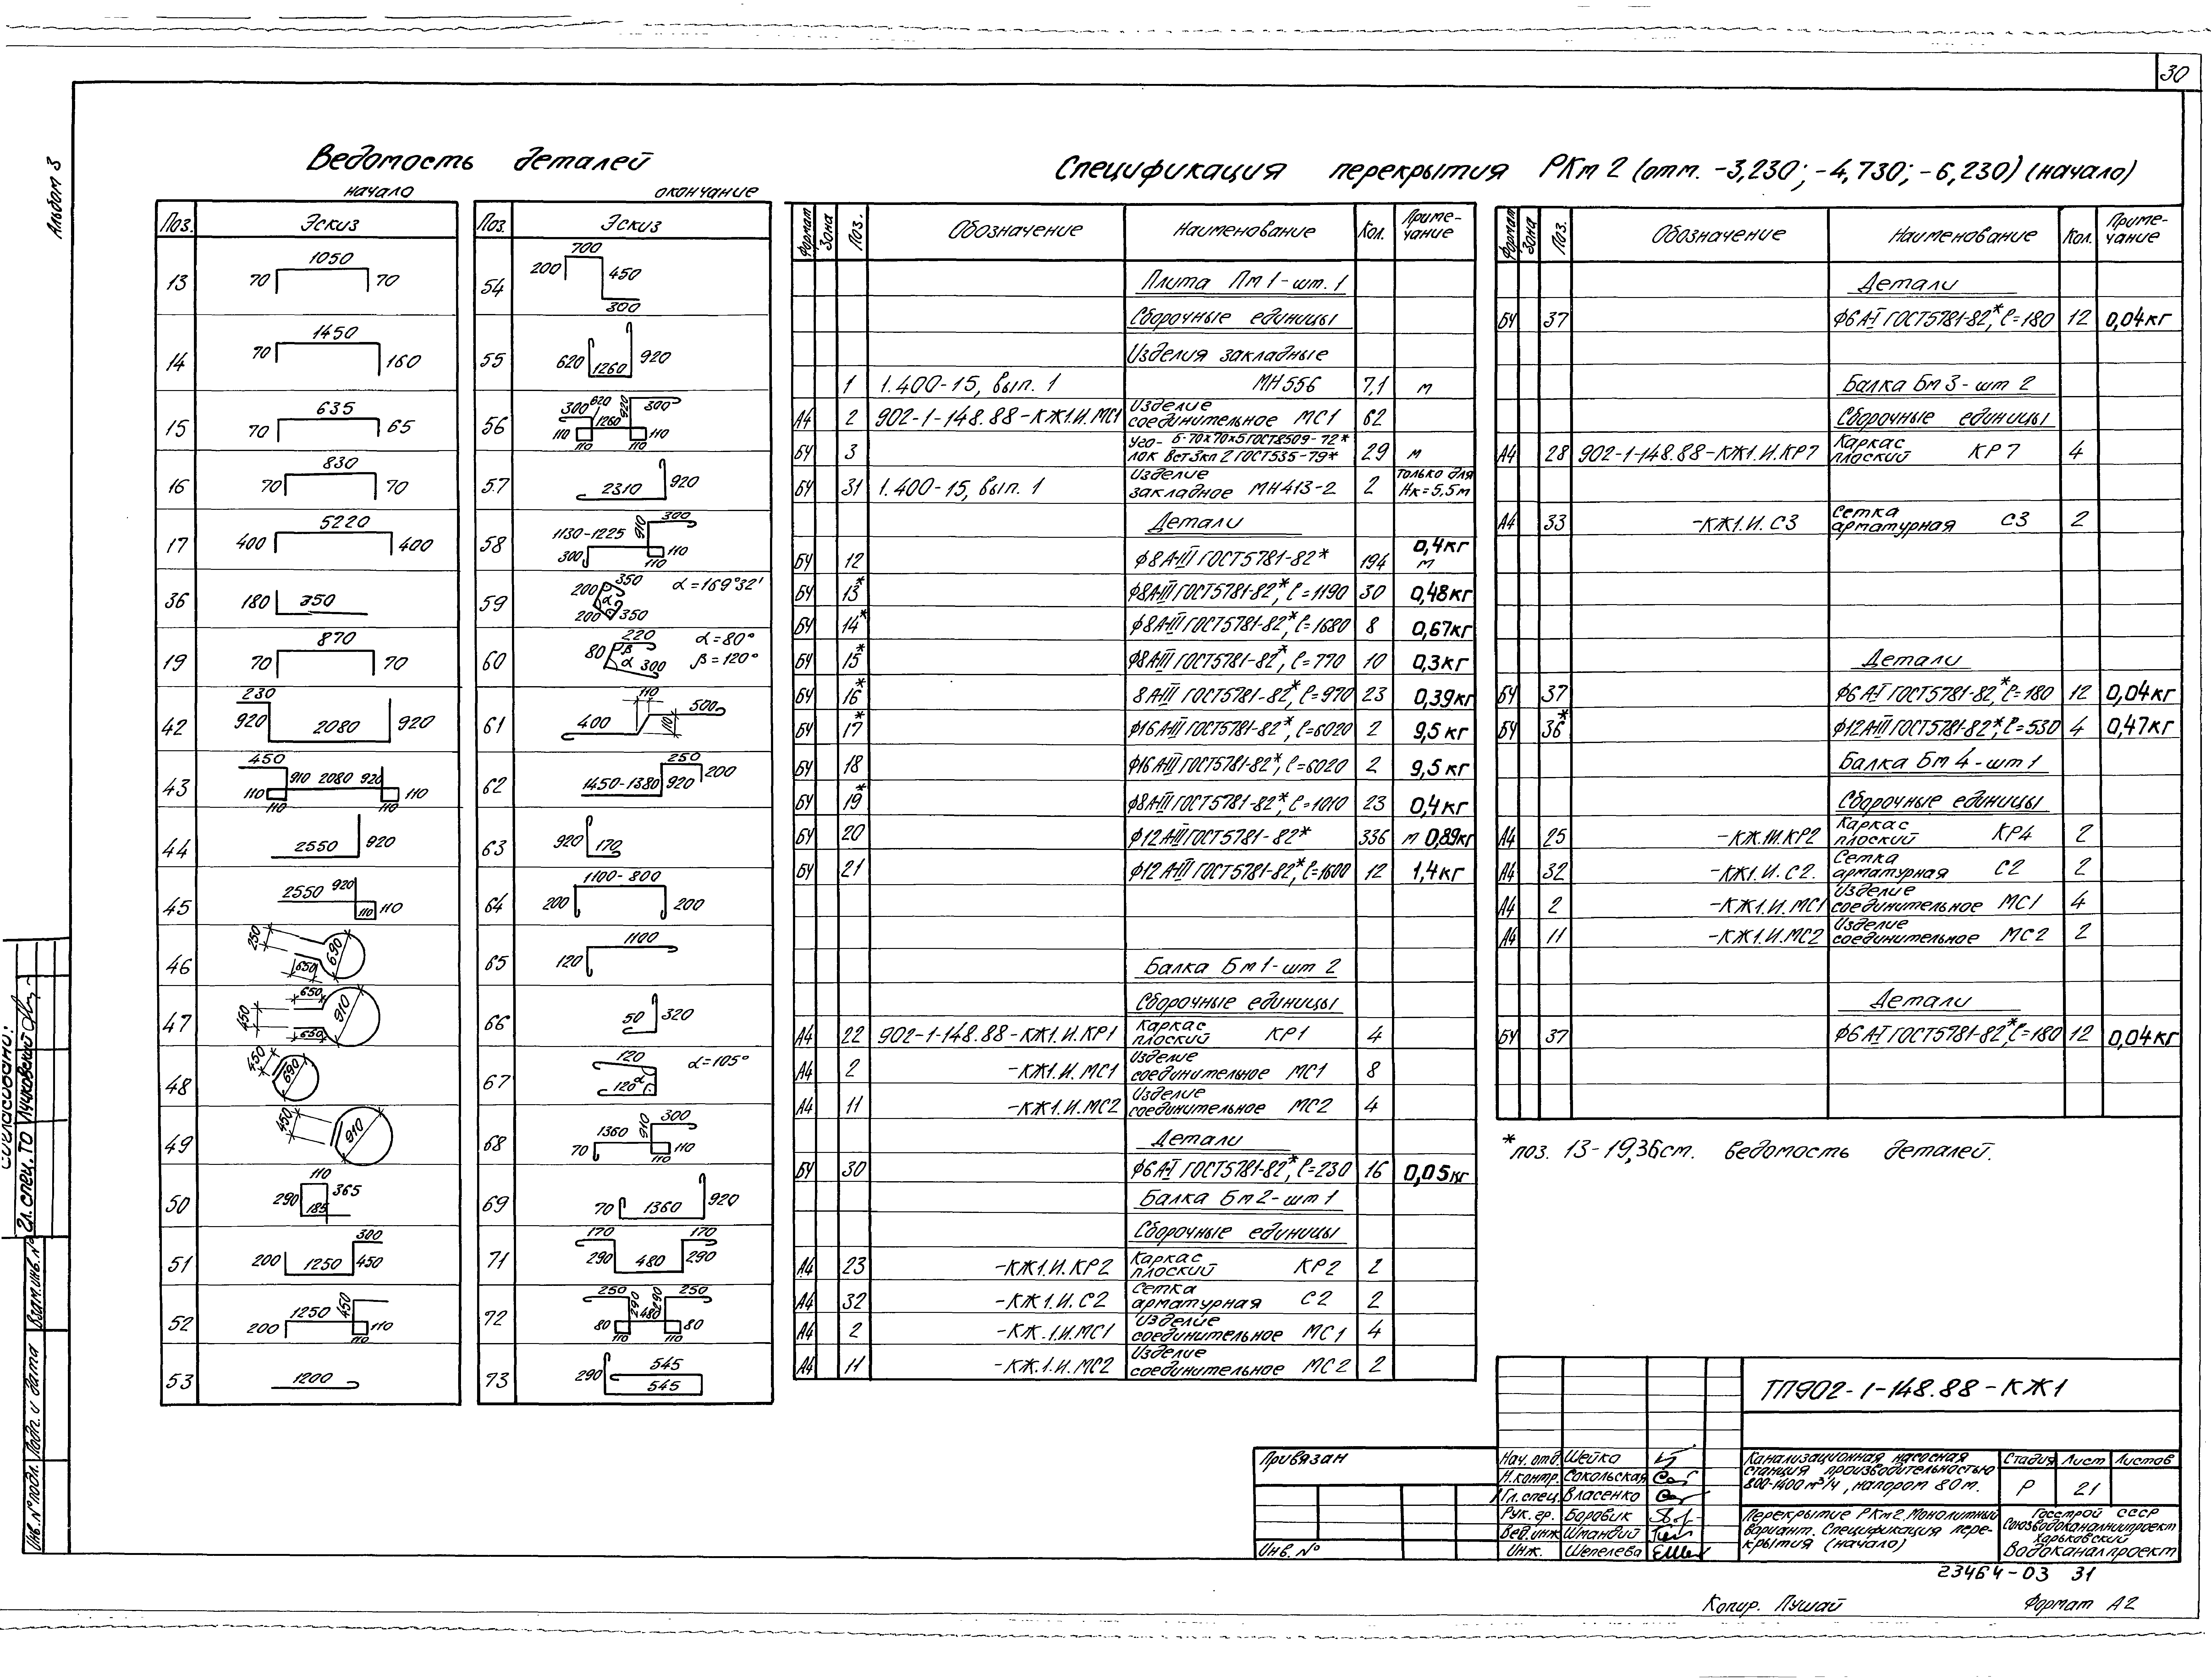 30
Альбом 3
Ведомость деталей
начало
окончание
Поз. Эскиз
13 70 1050 70
14 70 1450 160
15 70 635 65
16 70 830 70
17 400 5220 400
36 180 350
19 70 870 70
42 230 920 2080 920
43 450 910 2080 920 110 110 110
44 2550 920
45 2550 920 110 110
46 250 690 650
47 450 650 910 650
48 450 690
49 450 910
50 110 290 365 185
51 200 1250 450 300
52 200 1250 450 110 110
53 1200
Поз. Эскиз
54 700 200 450 300
55 620 1260 920
56 300 620 920 300 1260 110 110 110 110
57 2310 920
58 1130-1225 910 300 300 110 110
59 200 350 α 200 350 α=169°32'
60 80 220 β α 300 α=80° β=120°
61 400 110 500 110
62 1450-1380 920 250 200
63 920 170
64 200 1100-800 200
65 120 1100
66 50 320
67 120 120 α α=105°
68 70 1360 910 300 110 110
69 70 1360 920
71 170 290 480 290 170
72 250 290 290 250 480 80 80 110 110
73 290 545 545
Спецификация перекрытия РКм 2 (отм. -3,230; -4,730; -6,230) (начало)
Формат Зона Поз. Обозначение Наименование Кол. Приме-
чание
Плита Пм 1-шт. 1
Сборочные единицы
Изделия закладные
1 1.400-15, вып. 1 МН556 7,1 м
А4 2 902-1-148.88-КЖ1.И.МС1 Изделие
соединительное МС1 62
БЧ 3 Уго- Б-70х70х5 ГОСТ8509-72*
лок Вст3кп2 ГОСТ535-79* 29 м
БЧ 31 1.400-15, вып. 1 Изделие
закладное МН413-2 2 только для
Нк=5,5м
Детали
БЧ 12 Ф8 А-III ГОСТ5781-82* 194 0,4кг
м
БЧ 13* Ф8А-III ГОСТ5781-82*, ℓ=1190 30 0,48кг
БЧ 14* Ф8А-III ГОСТ5781-82*, ℓ=1680 8 0,67кг
БЧ 15* Ф8А-III ГОСТ5781-82*, ℓ=770 10 0,3кг
БЧ 16* 8А-III ГОСТ5781-82*, ℓ=970 23 0,39кг
БЧ 17* Ф16А-III ГОСТ5781-82*, ℓ=6020 2 9,5 кг
БЧ 18 Ф16А-III ГОСТ5781-82*, ℓ=6020 2 9,5 кг
БЧ 19* Ф8А-III ГОСТ5781-82*, ℓ=1010 23 0,4кг
БЧ 20 Ф12 А-III ГОСТ5781-82* 336 м 0,89кг
БЧ 21 Ф12 А-III ГОСТ5781-82*, ℓ=1600 12 1,4кг
Балка Бм1-шт 2
Сборочные единицы
А4 22 902-1-148.88-КЖ1.И.КР1 Каркас
плоский КР1 4
А4 2 -КЖ1.И.МС1 Изделие
соединительное МС1 8
А4 11 -КЖ1.И.МС2 Изделие
соединительное МС2 4
Детали
БЧ 30 Ф6 А-I ГОСТ5781-82*, ℓ=230 16 0,05кг
Балка Бм2-шт 1
Сборочные единицы
А4 23 -КЖ1.И.КР2 Каркас
плоский КР2 2
А4 32 -КЖ1.И.С2 Сетка
арматурная С2 2
А4 2 -КЖ.1.И.МС1 Изделие
соединительное МС1 4
А4 11 -КЖ.1.И.МС2 Изделие
соединительное МС2 2
Формат Зона Поз. Обозначение Наименование Кол. Приме-
чание
Детали
БЧ 37 Ф6 А-I ГОСТ5781-82*, ℓ=180 12 0,04кг
Балка Бм 3-шт 2
Сборочные единицы
А4 28 902-1-148.88-КЖ1.И.КР7 Каркас
плоский КР7 4
А4 33 -КЖ1.И.С3 Сетка
арматурная С3 2
Детали
БЧ 37 Ф6 А-I ГОСТ5781-82*, ℓ=180 12 0,04кг
БЧ 36* Ф12А-III ГОСТ5781-82*, ℓ=530 4 0,47кг
Балка Бм 4-шт 1
Сборочные единицы
А4 25 -КЖ.1И.КР2 Каркас
плоский КР4 2
А4 32 -КЖ1.И.С2. Сетка
арматурная С2 2
А4 2 -КЖ1.И.МС1 Изделие
соединительное МС1 4
А4 11 -КЖ1.И.МС2 Изделие
соединительное МС2 2
Детали
БЧ 37 Ф6 А-I ГОСТ5781-82*, ℓ=180 12 0,04кг
*поз. 13-19,36 см. ведомость деталей.
Согласовано:
Гл. спец. ТО Лучковский
Взам.инв.№
Подп. и дата
Инв.№ подл.
Привязан
Инв. №
ТП902-1-148.88-КЖ1
Нач. отд. Шейко
Н.контр. Сокольская
Гл. спец. Власенко
Рук. гр. Боровик
Вед.инж Шмандий
Инж. Шепелева
Канализационная насосная
станция производительностью
800-1400 м³/ч, напором 80 м.
Стадия Лист Листов
Р 21
Перекрытие РКм2.Монолитный
вариант. Спецификация пере-
крытия (начало)
Госстрой СССР
Союзводоканалниипроект
Харьковский
Водоканалпроект
23464-03 31
Копир. Пушай Формат А2